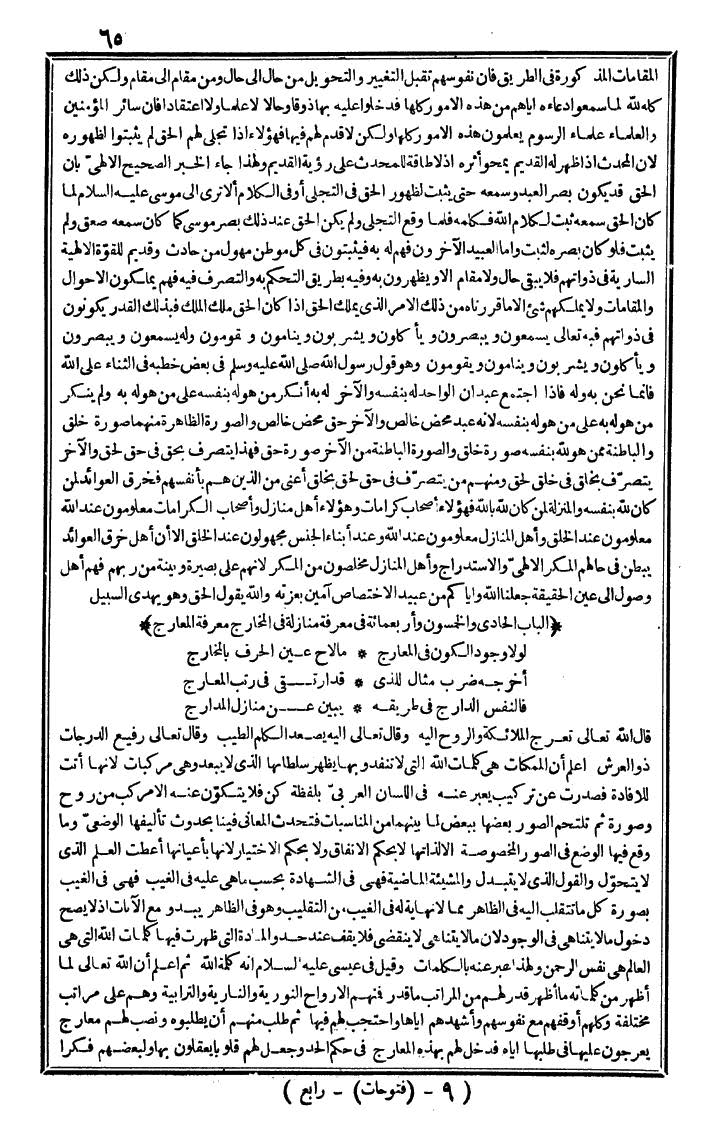 ٦٥
المقامات المذكورة فى الطريق فان نفوسهم تقبل التغيير والتحويل من حال الى حال ومن مقام الى مقام ولكن ذلك
كله لله لما سمعوا دعاءه اياهم من هذه الامور كلها فدخلوا عليه بها ذوقا وحالا لا علما ولا اعتقادا فان سائر المؤمنين
والعلماء علماء الرسوم يعلمون هذه الامور كلها ولكن لا قدم لهم فيها فهؤلاء اذا تجلى لهم الحق لم يثبتوا لظهوره
لان المحدث اذا ظهر له القديم يمحو أثره اذ لا طاقة للمحدث على رؤية القديم ولهذا جاء الخبر الصحيح الالهىّ بان
الحق قد يكون بصر العبد وسمعه حتى يثبت لظهور الحق فى التجلى أو فى الكلام ألا ترى الى موسى عليه السلام لما
كان الحق سمعه ثبت لكلام الله فكلمه فلما وقع التجلى ولم يكن الحق عند ذلك بصر موسى كما كان سمعه صعق ولم
يثبت فلو كان بصره لثبت واما العبيد الآخرون فهم له به فيثبتون فى كل موطن مهول من حادث وقديم للقوّة الالهية
السارية فى ذواتهم فلا يبقى حال ولا مقام الا ويظهرون به وفيه بطريق التحكم به والتصرف فيه فهم يملكون الاحوال
والمقامات ولا يملكهم شئ الا ما قررناه من ذلك الامر الذى يملك الحق اذا كان الحق ملك الملك فبذلك القدر يكونون
فى ذواتهم فبه تعالى يسمعون و يبصرون و يأكلون و يشربون و ينامون و يقومون وله يسمعون و يبصرون
و يأكلون و يشربون و ينامون و يقومون وهو قول رسول الله صلى الله عليه وسلم فى بعض خطبه فى الثناء على الله
فانما نحن به وله فاذا اجتمع عبدان الواحد له بنفسه والآخر له به أنكر من هو له بنفسه على من هو له به ولم ينكر
من هو له به على من هو له بنفسه لانه عبد محض خالص والآخر حق محض خالص والصورة الظاهرة منهما صورة خلق
والباطنة ممن هو لله بنفسه صورة خلق والصورة الباطنة من الآخر صورة حق فهذا يتصرف بحق فى حق لحق والآخر
يتصرّف بخلق فى خلق لحق ومنهم من يتصرّف فى حق لحق بخلق أعنى من الذين هم بأنفسهم فخرق العوائد لمن
كان لله بنفسه والمنزلة لمن كان لله بالله فهؤلاء أصحاب كرامات وهؤلاء أهل منازل وأصحاب الكرامات معلومون عند الله
معلومون عند الخلق وأهل المنازل معلومون عند الله وعند أبناء الجنس مجهولون عند الخلق الا أن أهل خرق العوائد
يبطن فى حالهم المكر الالهىّ والاستدراج وأهل المنازل مخلصون من المكر لانهم على بصيرة وبينة من ربهم فهم أهل
وصول الى عين الحقيقة جعلنا الله واياكم من عبيد الاختصاص آمين بعزته والله يقول الحق وهو يهدى السبيل
﴿الباب الحادى والخمسون وأربعمائة فى معرفة منازلة فى المخارج معرفة المعارج﴾
لولا وجود الكون فى المعارج * مالاح عين الحرف بالمخارج
أخرجه ضرب مثال للذى * قد ارتقى فى رتب المعارج
فالنفس الدارج فى طريقه * يبين عن منازل المدارج
قال الله تعالى تعرج الملائكة والروح اليه وقال تعالى اليه يصعد الكلم الطيب وقال تعالى رفيع الدرجات
ذو العرش اعلم أن الممكنات هى كلمات الله التى لا تنفد وبها يظهر سلطانها الذى لا يبعد وهى مركبات لانها أتت
للافادة فصدرت عن تركيب يعبر عنه فى اللسان العربىّ بلفظة كن فلا يتكوّن عنه الا مركب من روح
وصورة ثم تلتحم الصور بعضها ببعض لما بينهما من المناسبات فتحدث المعانى فينا بحدوث تأليفها الوضعىّ وما
وقع فيها الوضع فى الصور المخصوصة الا لذاتها لا بحكم الاتفاق ولا بحكم الاختيار لانها بأعيانها أعطت العلم الذى
لا يتحوّل والقول الذى لا يتبدل والمشيئة الماضية فهى فى الشهادة بحسب ما هى عليه فى الغيب فهى فى الغيب
بصورة كل ما تتقلب اليه فى الظاهر مما لا نهاية له فى الغيب من التقليب وهو فى الظاهر يبدو مع الآنات اذ لا يصح
دخول ما لا يتناهى فى الوجود لان ما لا يتناهى لا ينقضى فلا يقف عند حد والمادة التى ظهرت فيها كلمات الله التى هى
العالم هى نفس الرحمن ولهذا عبر عنه بالكلمات وقيل فى عيسى عليه السلام انه كلمة الله ثم اعلم أن الله تعالى لما
أظهر من كلماته ما أظهر قدر لهم من المراتب ما قدر فمنهم الارواح النورية والنارية والترابية وهم على مراتب
مختلفة وكلهم أوقفهم مع نفوسهم وأشهدهم اياها واحتجب لهم فيها ثم طلب منهم أن يطلبوه ونصب لهم معارج
يعرجون عليها فى طلبها اياه فدخل لهم بهذه المعارج فى حكم الحد وجعل لهم قلوبا يعقلون بها ولبعضهم فكرا
( ٩ - (فتوحات) - رابع )